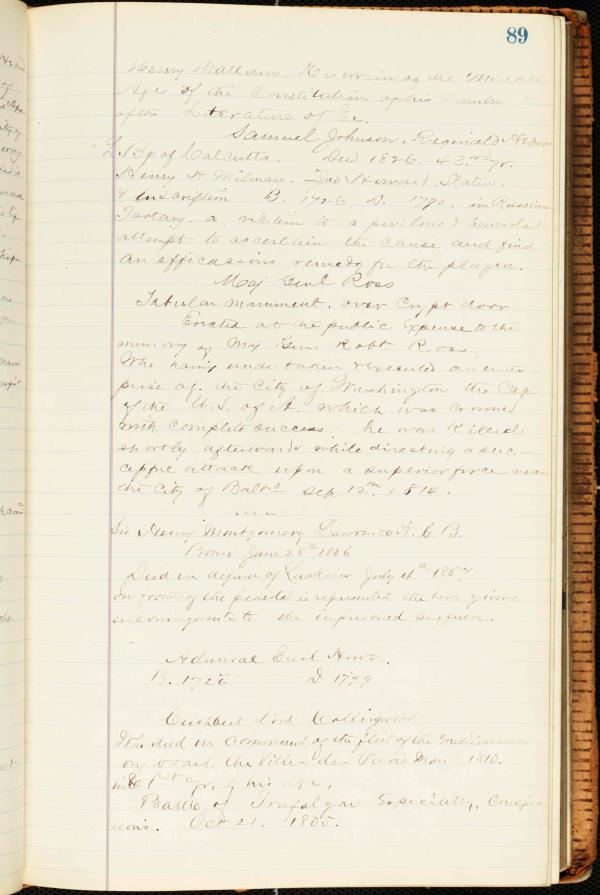 89
Henry Hallam. Historian of the Middle
Ages of the Constitution of his Country &
of the Literature of Eu.
Samuel Johnson. Reginald Heber
L. Bp of Calcutta. Died 1826. 43rd yr.
Henry H Milman. Jno Howard. Statue.
& inscription B. 1726 D. 1790. in Russian
Tartary. a victim to a perilous & benevolent
attempt to ascertain the cause and find
an efficasious remedy for the plague.
Maj Genl Ross
Tabular monument. over Crypt door
Erected at the public Expense to the
memory of Maj Gen. Robt Ross
Who having undertaken & executed an enter
prise ag. the City of Washington the Cap
of the U.S. of A. which was crowned
with complete success he was Killed
shortly afterwards while directing a suc-
cessful attack upon a superior force near
the City of Balto Sep 12th 1814.
Sir Henry Montgomery Lawrence K. C. B.
Born June 28th 1806
Died in defence of Lucknow July 4th 1857
In front of the pedestal is represented the hero giving
encouragement to the imprisoned sufferers.
Admiral Earl Howe.
B. 1726 D 1799
Cuthbert Lord Collingwood
Who died in command of the fleet of the Mediterranean
on board the Ville-de Paris Mar 7 1810.
in 61st yr. of his age.
Battle of Trafalgar Especially, Conspic
uous. Oct 21. 1805.